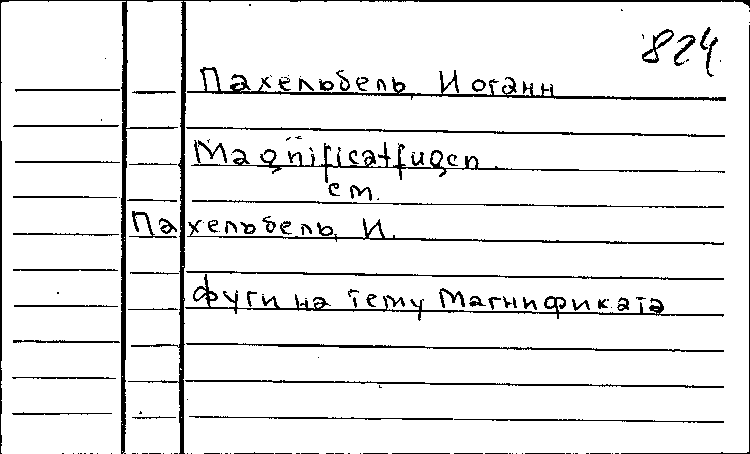 824
Пахельбель, Иоганн
Magnificatfugen.
см.
Пахельбель, И.
Фуги на тему Магнификата